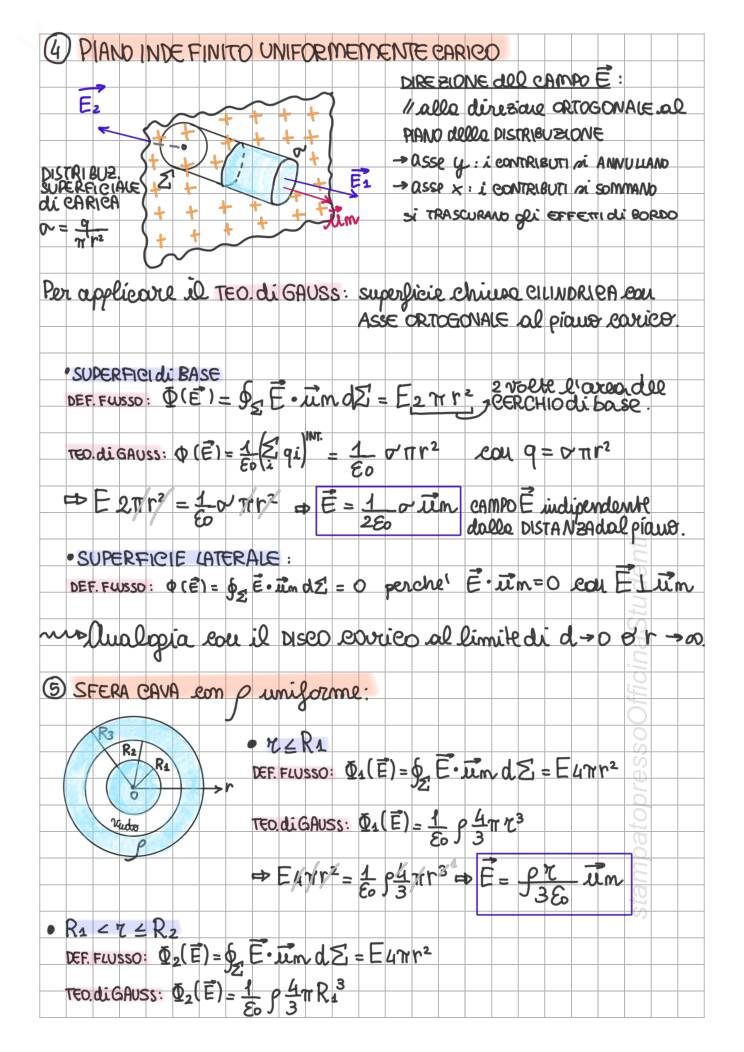 ④ PIANO INDEFINITO UNIFORMEMENTE CARICO
E⃗2
DISTRIBUZ. SUPERFICIALE di CARICA
σ = q/πr²
Σ
σ
E⃗1
u⃗m
DIREZIONE del CAMPO E⃗ :
// alla direzione ORTOGONALE al
PIANO della DISTRIBUZIONE
→ asse y : i CONTRIBUTI si ANNULLANO
→ asse x : i CONTRIBUTI si SOMMANO
si TRASCURANO gli EFFETTI di BORDO
Per applicare il TEO. di GAUSS: superficie chiusa CILINDRICA con
ASSE ORTOGONALE al piano carico.
• SUPERFICI di BASE
DEF. FLUSSO: Φ(E⃗) = ∮Σ E⃗ · u⃗m dΣ = E 2πr² 2 volte l'area del
CERCHIO di base.
TEO. di GAUSS: Φ(E⃗) = 1/ε0 (Σi qi)INT. = 1/ε0 σπr² con q = σπr²
⇒ E 2πr² = 1/ε0 σπr² ⇒ E⃗ = 1/2ε0 σ u⃗m CAMPO E⃗ indipendente
dalla DISTANZA dal piano.
• SUPERFICIE LATERALE :
DEF. FLUSSO: Φ(E⃗) = ∮Σ E⃗ · u⃗m dΣ = 0 perche' E⃗ · u⃗m = 0 con E⃗ ⊥ u⃗m
Analogia con il DISCO carico al limite di d → 0 o r → ∞.
⑤ SFERA CAVA con ρ uniforme:
R3
R2
R1
0
r
vuoto
ρ
• r ≤ R1
DEF. FLUSSO: Φ1(E⃗) = ∮Σ E⃗ · u⃗m dΣ = E4πr²
TEO. di GAUSS: Φ1(E⃗) = 1/ε0 ρ 4/3 πr³
⇒ E4πr² = 1/ε0 ρ 4/3 πr³ ⇒ E⃗ = ρr/3ε0 u⃗m
• R1 < r ≤ R2
DEF. FLUSSO: Φ2(E⃗) = ∮Σ E⃗ · u⃗m dΣ = E4πr²
TEO. di GAUSS: Φ2(E⃗) = 1/ε0 ρ 4/3 πR1³
stampatopressoOfficinaStudenti